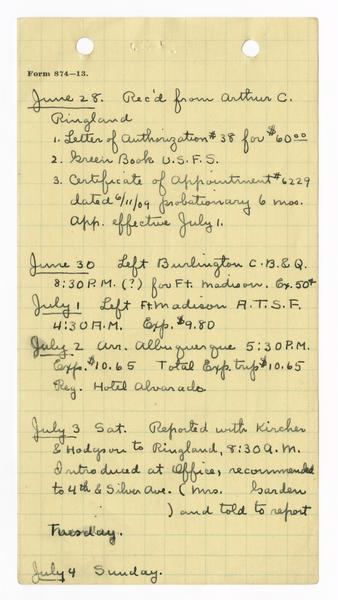 Form 874—13.
June 28. Rec'd from Arthur C.
Ringland
1. Letter of Authorization # 38 for $60.00
2. Green Book U.S.F.S.
3. Certificate of Appointment #6229
dated 6/11/09 probationary 6 mos.
App. effective July 1.
June 30 Left Burlington C.B.& Q.
8:30 P.M. (?) for Ft. Madison. Ex. 50¢
July 1 Left Ft. Madison A.T.S.F.
4:30 A.M. Exp. $9.80
July 2 Arr. Albuquerque 5:30 P.M.
Exp. $10.65 Total Exp. trip $10.65
Reg. Hotel Alvarado
July 3 Sat. Reported with Kircher
& Hodgson to Ringland, 8:30 A.M.
Introduced at Office, recommended
to 4th & Silver Ave. (Mrs. Garden
) and told to report
Tuesday.
July 4 Sunday.